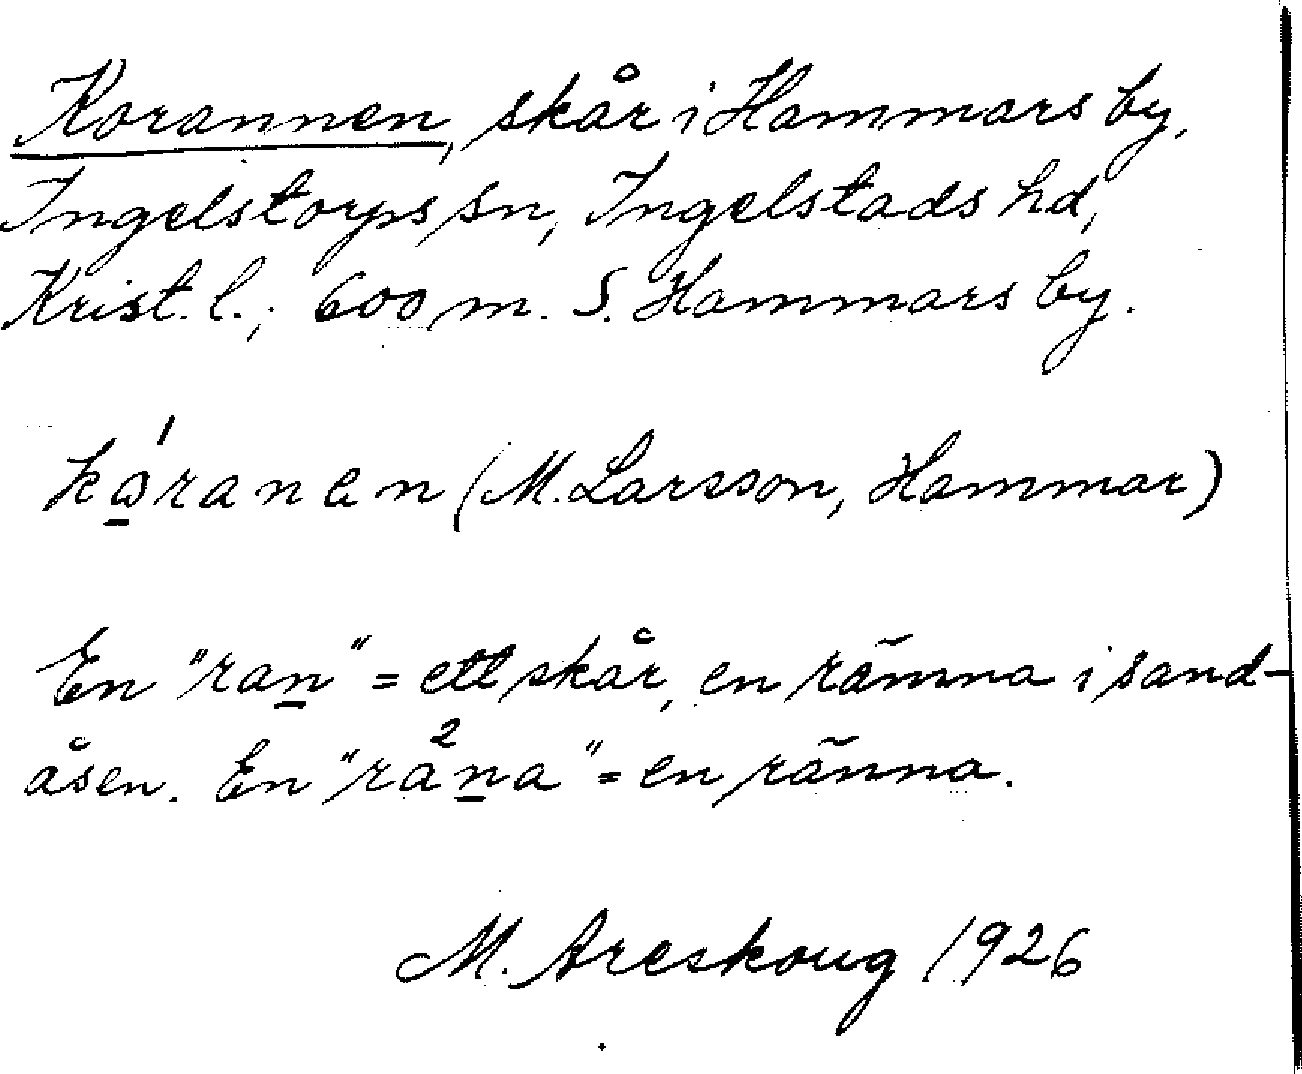 Korannen, skår i Hammars by,
Ingelstorps sn, Ingelstads hd,
Krist. l.; 600 m. S. Hammars by.
kɷ̠́ranen (M. Larsson, Hammar)
En "ran̲" = ett skår, en rämna i sand-
åsen. En "rå²n̲a" = en ränna.
M. Areskoug 1926